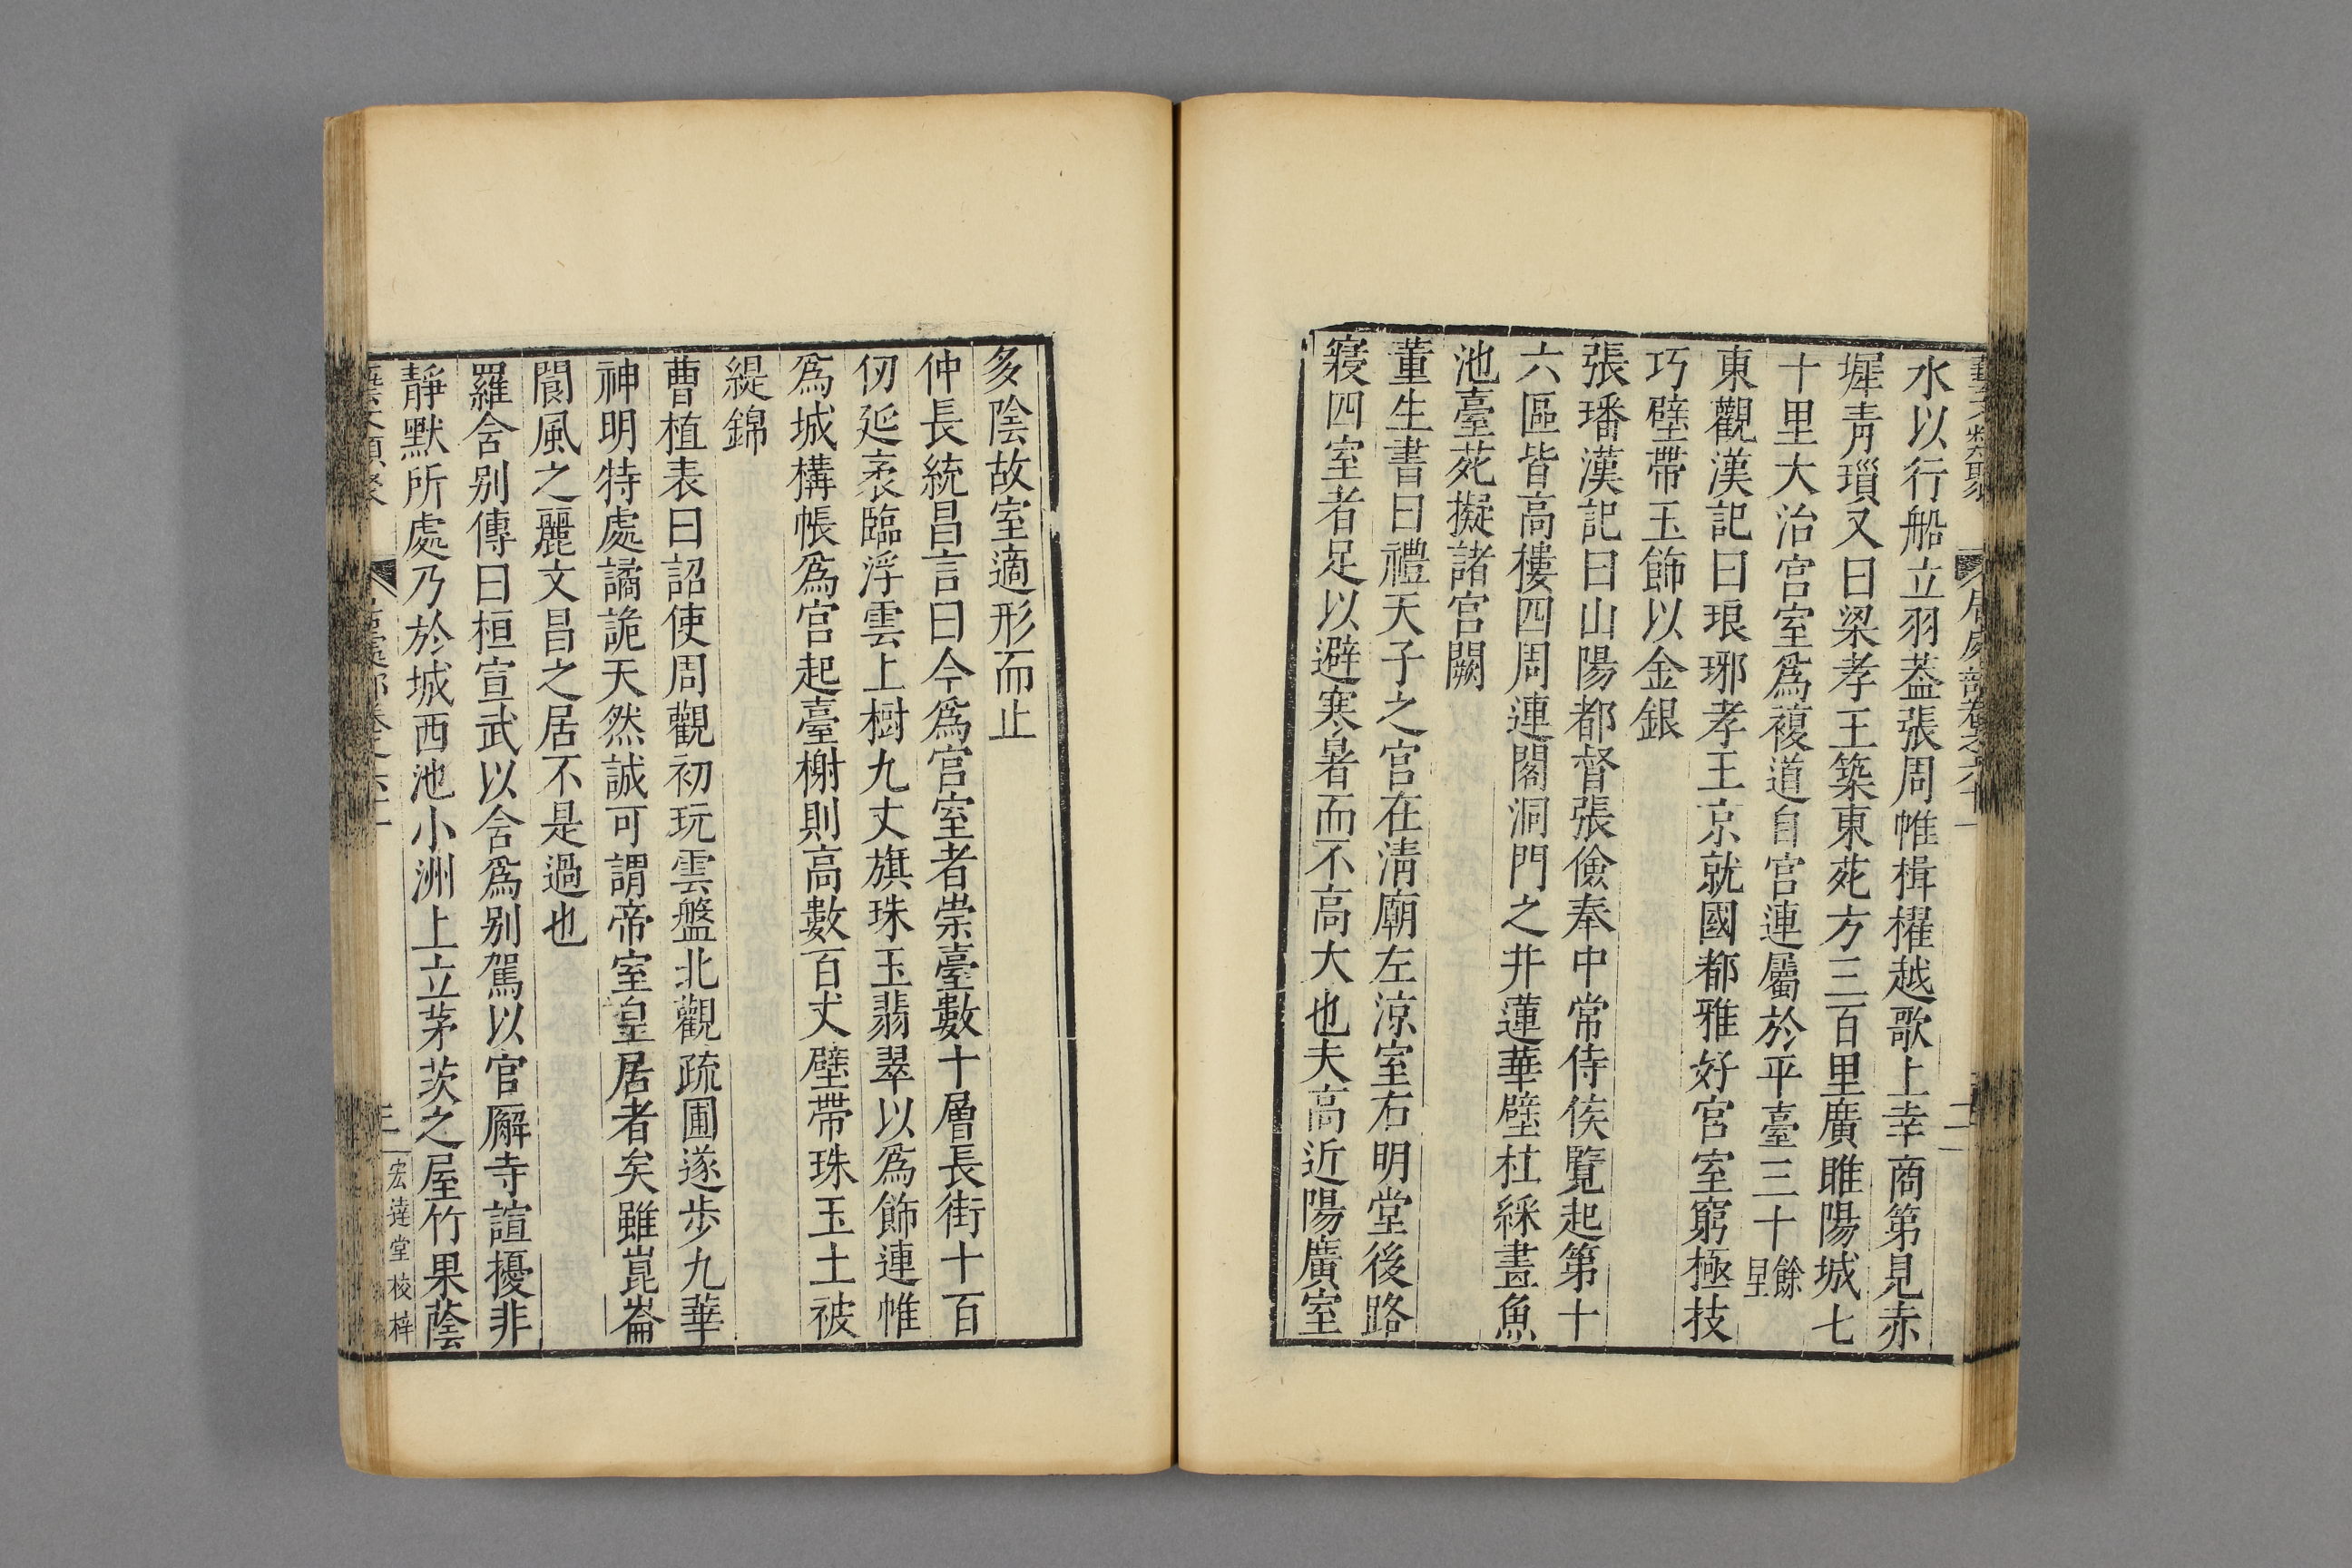 藝文類聚 居處部卷之六十一 二
水以行船立羽葢張周帷楫櫂越歌上幸商第見赤
墀青瑣又曰梁孝王築東苑方三百里廣睢陽城七
十里大治宮室爲複道自宮連屬於平臺三十餘里
東觀漢記曰琅琊孝王京就國都雅好宮室窮極技
巧壁帶玉飾以金銀
張璠漢記曰山陽都督張儉奉中常侍侯覽起第十
六區皆高樓四周連閣洞門之井蓮華壁柱綵畫魚
池臺苑擬諸宮闕
董生書曰禮天子之宮在清廟左涼室右明堂後路
寢四室者足以避寒暑而不高大也夫高近陽廣室
多陰故室適形而止
仲長統昌言曰今爲宮室者崇臺數十層長街十百
仞延袤臨浮雲上樹九丈旗珠玉翡翠以爲飾連帷
爲城構帳爲宮起臺榭則高數百丈壁帶珠玉土被
緹錦
曹植表曰詔使周觀初玩雲盤北觀疏圃遂步九華
神明特處譎詭天然誠可謂帝室皇居者矣雖崑崙
閬風之麗文昌之居不是過也
羅含别傳曰桓宣武以含爲别駕以官廨寺諠擾非
靜默所處乃於城西池小洲上立茅茨之屋竹果蔭
藝文類聚 居處部卷之六十一 三 宏達堂校梓